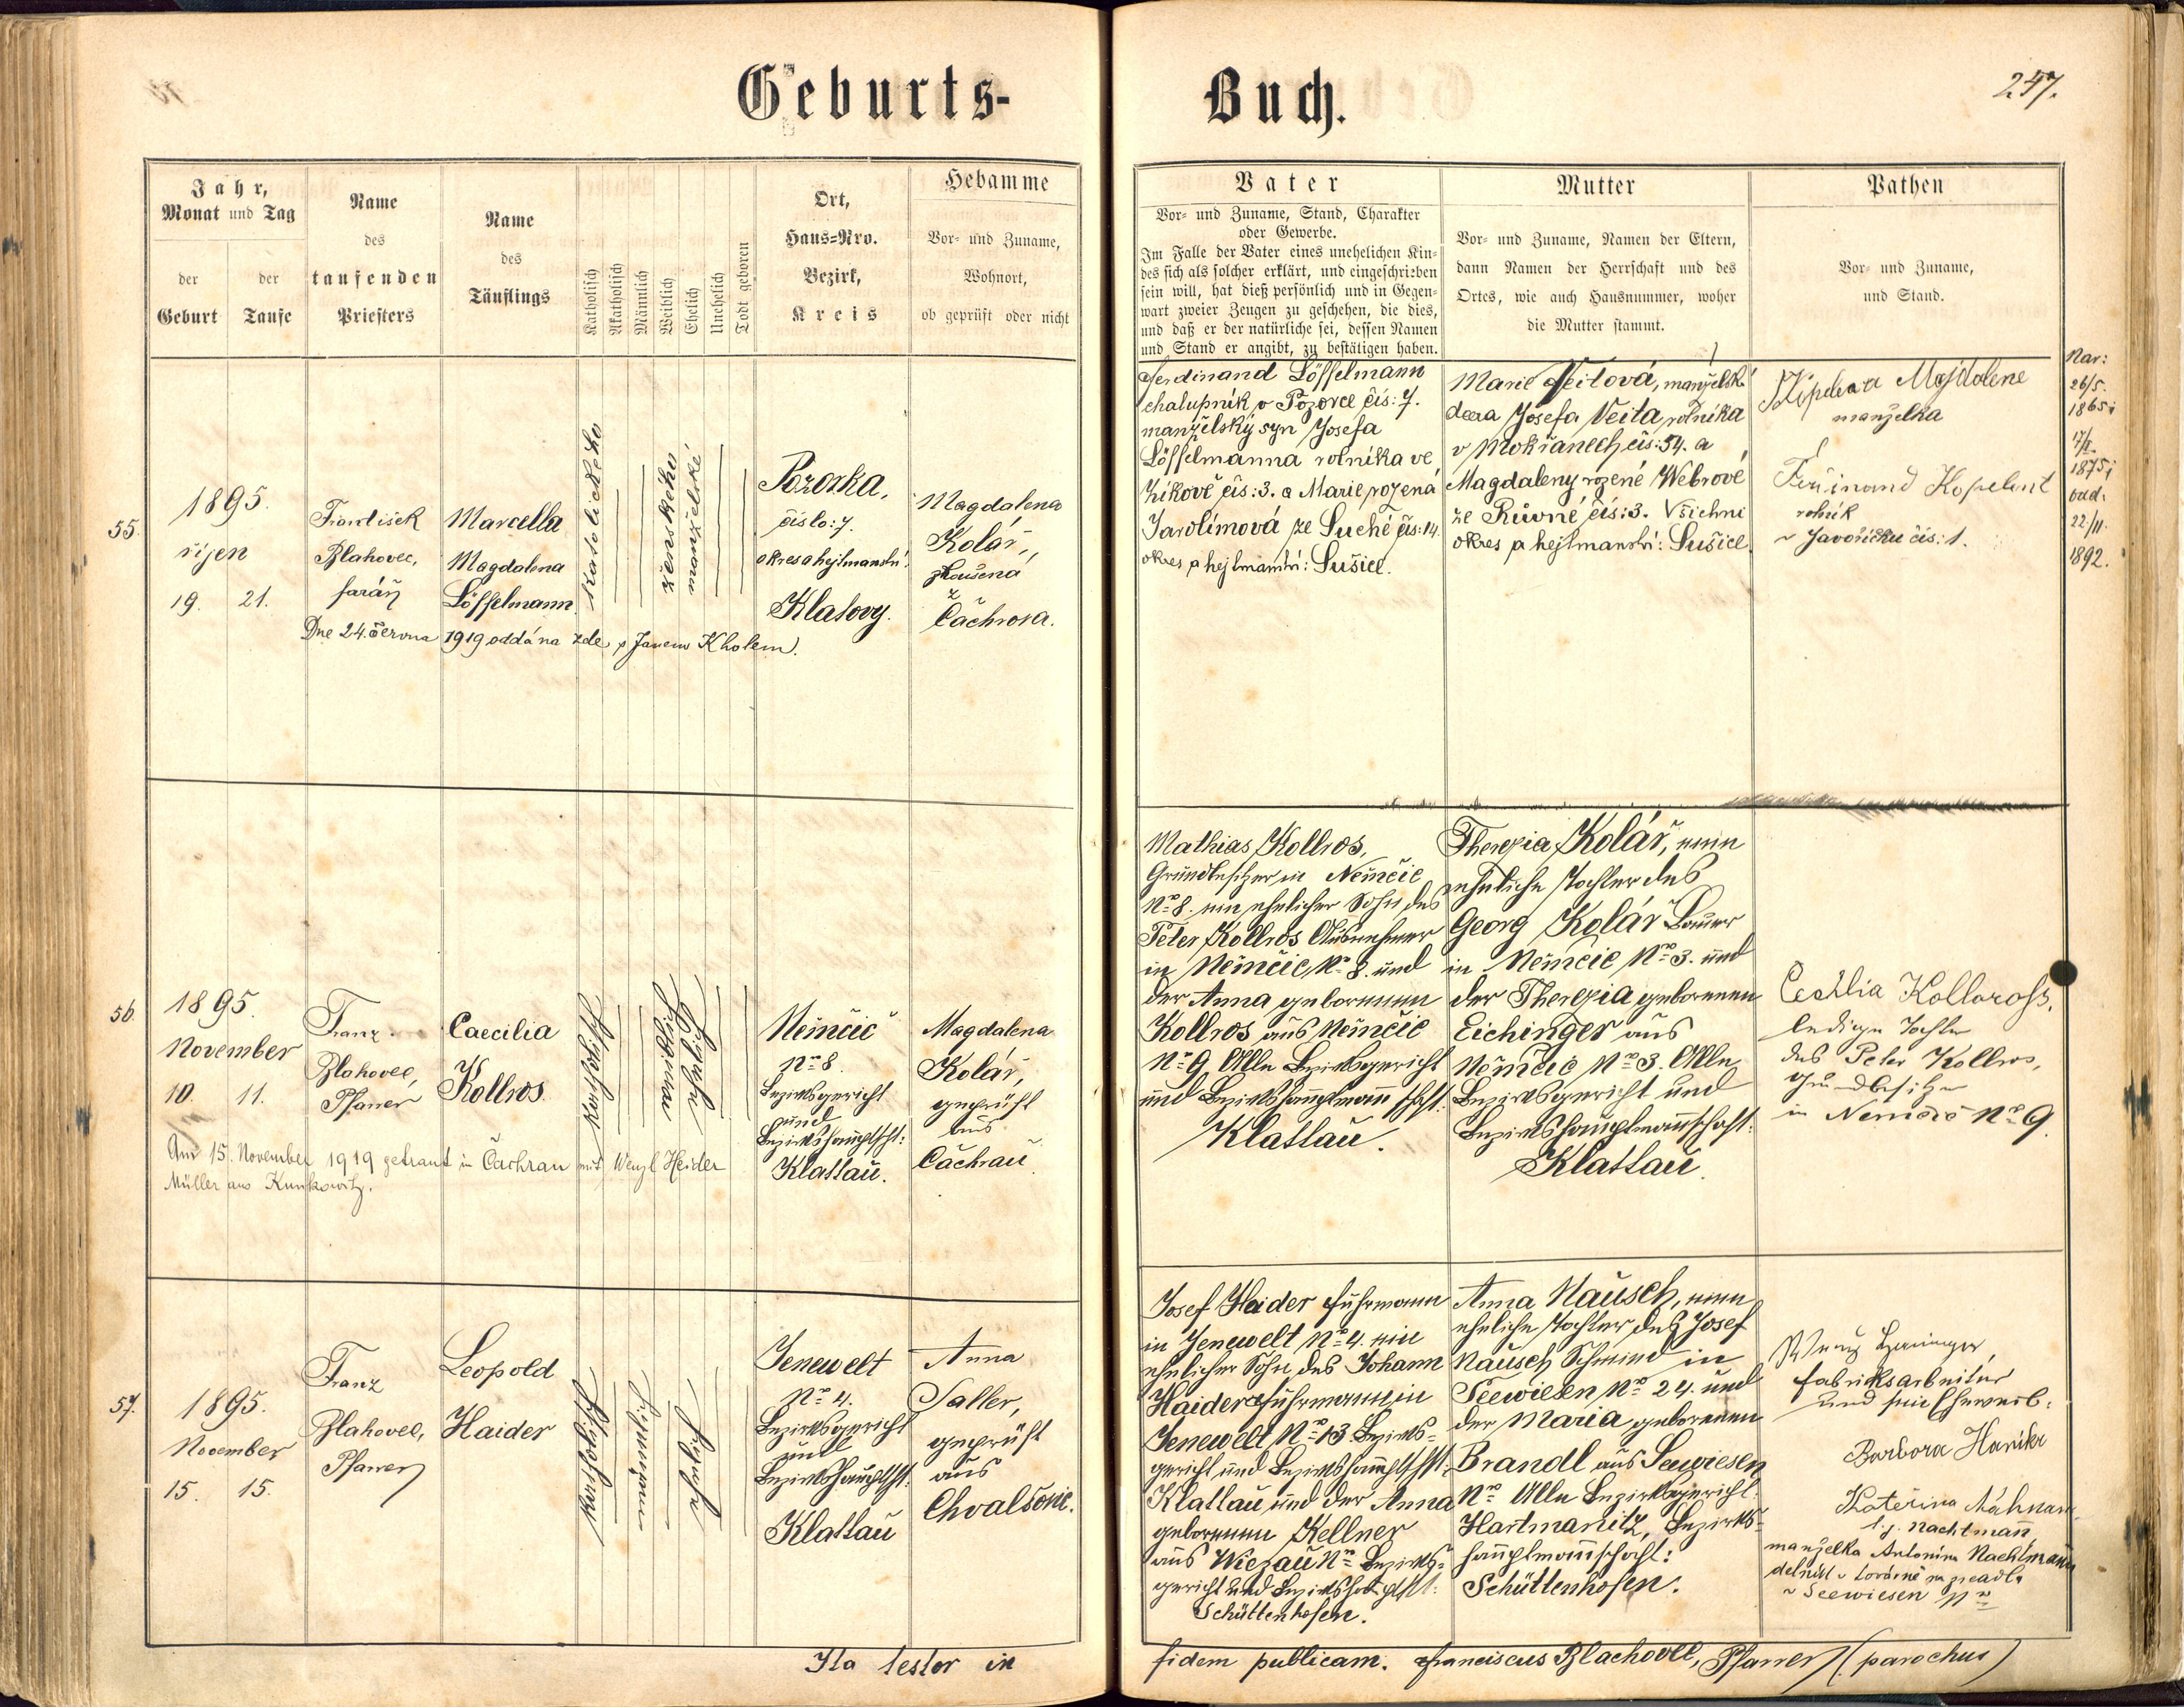 Geburts-
Buch.
247.
Jahr,
Monat und Tag
der
Geburt
der
Taufe
Name
des
taufenden
Priesters
Name
des
Täuflings
Katholisch
Akatholisch
Männlich
Weiblich
Ehelich
Unehelich
Todt geboren
Ort,
Haus=Nro.
Bezirk,
Kreis
Hebamme
Vor- und Zuname,
Wohnort,
ob geprüft oder nicht
Vater
Vor- und Zuname, Stand, Charakter
oder Gewerbe.
Im Falle der Vater eines unehelichen Kin-
des sich als solcher erklärt, und eingeschrieben
sein will, hat dieß persönlich und in Gegen-
wart zweier Zeugen zu geschehen, die dies,
und daß er der natürliche sei, dessen Namen
und Stand er angibt, zu bestätigen haben.
Mutter
Vor- und Zuname, Namen der Eltern,
dann Namen der Herrschaft und des
Ortes, wie auch Hausnummer, woher
die Mutter stammt.
Pathen
Vor- und Zuname,
und Stand.
55.
1895.
říjen
19. 21.
František
Blahovec,
farář
Marcella
Magdalena
Löffelmann
katolického
ženského
manželské
Pozorka,
číslo: 7.
okres a hejtmanství:
Klatovy.
Magdalena
Kolář,
zkoušená
z
Čachrova.
Dne 24. června 1919 oddána zde s Janem Kholem.
Ferdinand Löffelmann
chalupník v Pozorce čís: 7.
manželský syn Josefa
Löffelmanna rolníka ve
Zikově čís: 3. a Marie rozená
Jarolímová ze Suché čís: 14.
okres a hejtmanství: Sušice.
Marie Veitová, manželská
dcera Josefa Veita, rolníka
v Mokřanech čís: 54. a
Magdaleny rozené Webrové
ze Růvné čís: 3. Všichni
okres a hejtmanství: Sušice.
Magdalena
manželka
Ferdinand Kopelent
rolník
v Javoříčku čís: 1.
Nar:
26/5.
1865;
17/2.
1875;
odd.
22/11.
1892.
56.
1895.
November
10. 11.
Franz
Blahovec,
Pfarrer
Caecilia
Kollros.
katholisch
weiblich
ehelich
Němčic
No 8.
Bezirksgericht
und
Bezirkshauptscht:
Klattau.
Magdalena
Kolář,
geprüft
aus
Čachrau
Am 15. November 1919 getraut in Čachrau mit Wenzl Heider
Müller aus Kunkowitz.
Mathias Kollros,
Grundbesitzer in Němčic
No 8. ein ehelicher Sohn des
Peter Kollros Ausnehmer
in Němčic No 8. und
der Anna geborenen
Kollros aus Němčic
No 9 Alle Bezirksgericht
und Bezirkshauptmannschft:
Klattau.
Theresia Kolář, eine
eheliche Tochter des
Georg Kolář Bauer
in Němčic No 3. und
der Theresia geborenen
Eichinger aus
Němčic No 3. Alle
Bezirksgericht und
Bezirkshauptmannschaft:
Klattau.
Cecilia Kolloross,
ledige Tochter
des Peter Kollros,
Grundbesitzer
in Nemčic No 9.
57.
1895.
November
15. 15.
Franz
Blahovec,
Pfarrer
Leopold
Haider
katholisch
ehelich
Jenewelt
No 4.
Bezirksgericht
und
Bezirkshauptscht:
Klattau
Anna
Saller,
geprüft
aus
Chvalšovic.
Josef Haider Fuhrmann
in Jenewelt No 4. ein
ehelicher Sohn des Johann
Haider Fuhrmann in
Jenewelt No 13. Bezirks-
gericht und Bezirkshauptschft:
Klattau und der Anna
geborenen Kellner
aus Wiezau No Bezirks-
gericht und Bezirkshauptschft:
Schüttenhofen.
Anna Nausch, eine
eheliche Tochter des Josef
Nausch Schmied in
Seewiesen No 24. und
der Maria geborenen
Brandl aus Seewiesen
No Alle Bezirksgericht
Hartmanitz, Bezirks-
hauptmannschaft:
Schüttenhofen.
Fabriksarbeiter
und sein Eheweib:
Barbora
Kateřina
l. j. Nachtmann
manželka Antonína Nachtmann
v Seewiesen No
Ita testor in fidem publicam. Franciscus Blachovec, Pfarrer (parochus)